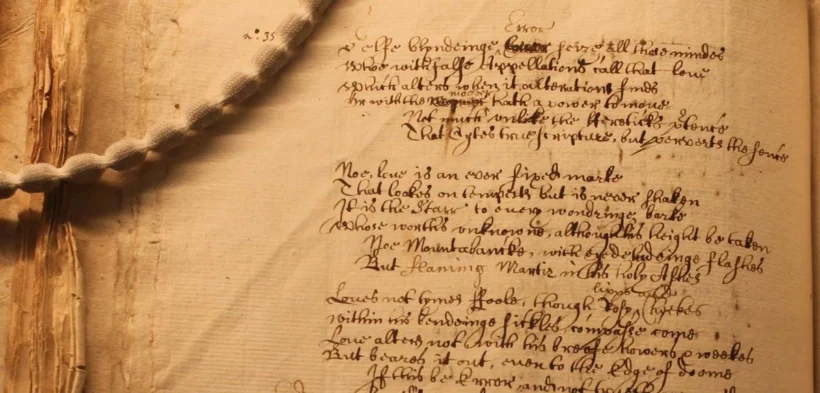 Error
n.º 35
Selfe blyndeinge seize all those mindes
Whoe with falce Appellations call that love
Which alters when it alterations finds
Or with the mover hath a power to move
Not much unlike the Hereticks ptence
That Cytes true scripture, but perverts the sence
Noe, love is an ever fixed marke
That lookes on tempests but is never shaken
It is the Starr to every wondringe barke
Whose worths unknowne, although his height be taken
Noe Mountabancke, with eye deludeinge flashes
But flameing Martir in his holy Ashes
lipps and
Loves not tymes foole, though Rosy Cheekes
within his bendeinge sickles compasse come
Love alters not with his breefe howers & weekes
But beares it out, even to the Edge of doome
If this be Error, and not